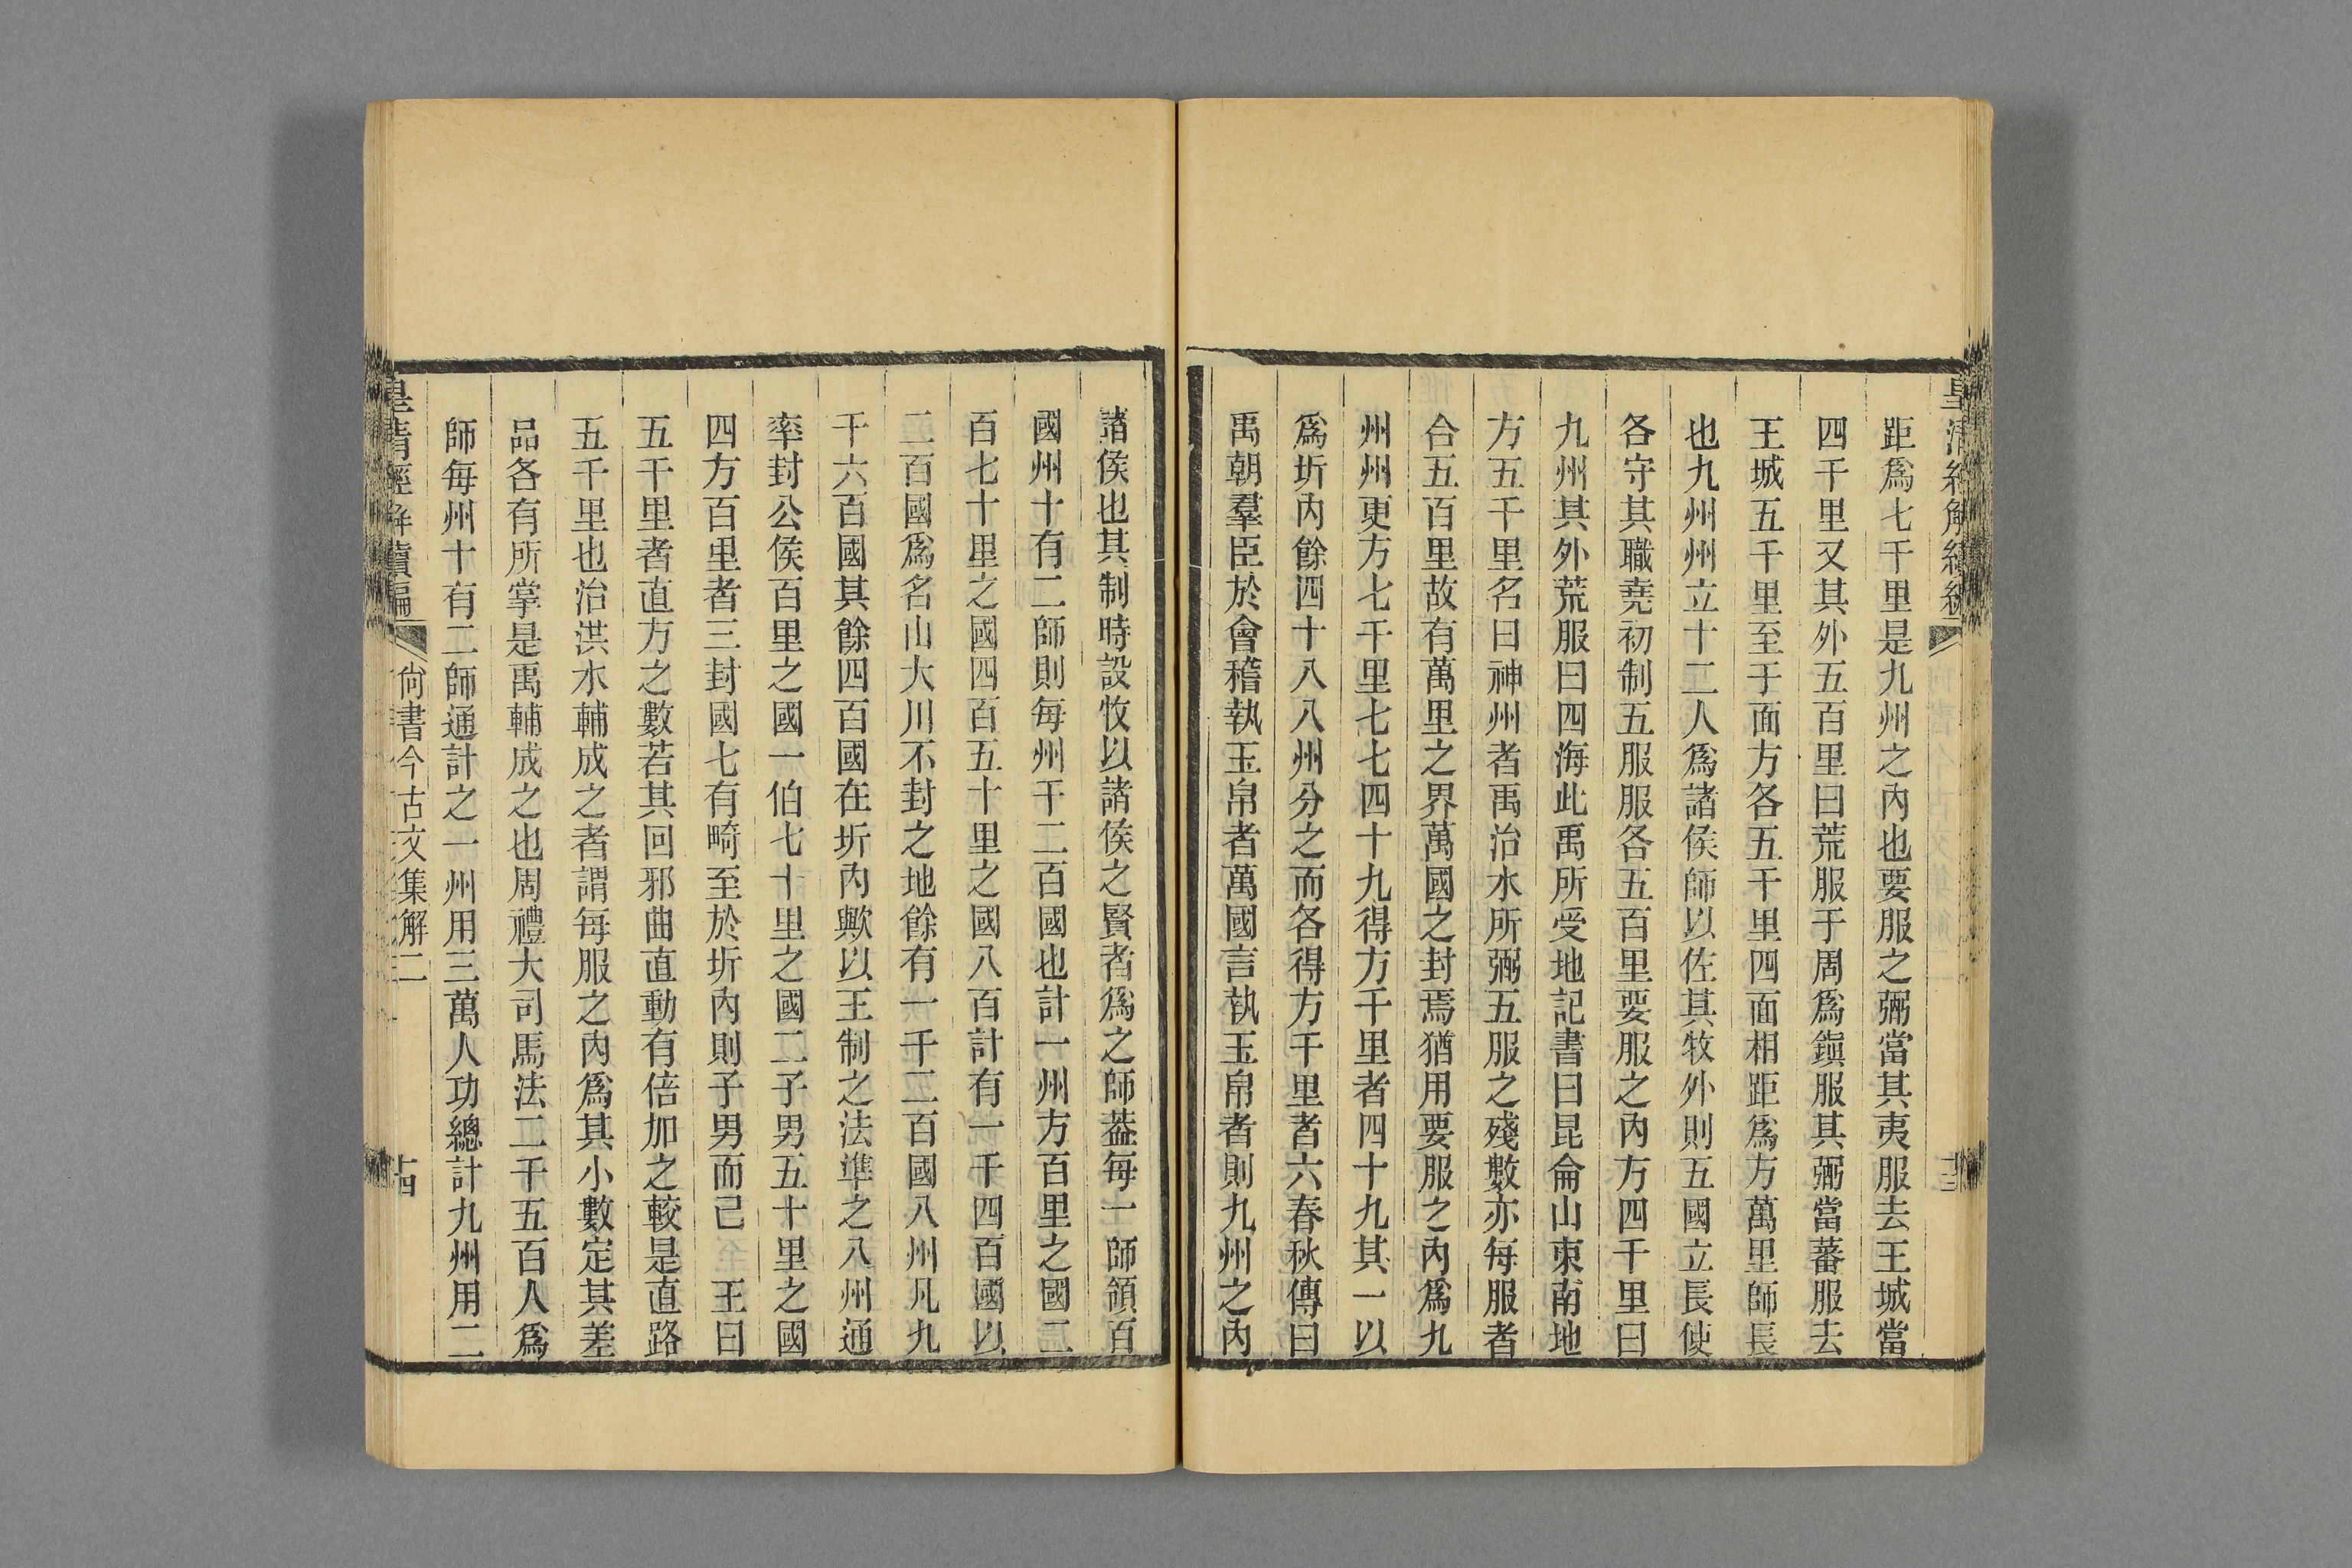 距爲七千里是九州之內也要服之弼當其夷服去王城當
四千里又其外五百里曰荒服于周爲鎭服其弼當蕃服去
王城五千里至于面方各五千里四面相距爲方萬里師長
也九州州立十二人爲諸侯師以佐其牧外則五國立長使
各守其職堯初制五服服各五百里要服之內方四千里曰
九州其外荒服曰四海此禹所受地記書曰昆侖山東南地
方五千里名曰神州者禹治水所弼五服之殘數亦每服者
合五百里故有萬里之界萬國之封焉猶用要服之內爲九
州州更方七千里七七四十九得方千里者四十九其一以
爲圻內餘四十八八州分之而各得方千里者六春秋傳曰
禹朝羣臣於會稽執玉帛者萬國言執玉帛者則九州之內
諸侯也其制時設牧以諸侯之賢者爲之師葢每一師領百
國州十有二師則每州千二百國也計一州方百里之國二
百七十里之國四百五十里之國八百計有一千四百國以
二百國爲名山大川不封之地餘有一千二百國八州凡九
千六百國其餘四百國在圻內歟以王制之法準之八州通
率封公侯百里之國一伯七十里之國二子男五十里之國
四方百里者三封國七有畸至於圻內則子男而己 王曰
五千里者直方之數若其回邪曲直動有倍加之較是直路
五千里也治洪水輔成之者謂每服之內爲其小數定其差
品各有所掌是禹輔成之也周禮大司馬法二千五百人爲
師每州十有二師通計之一州用三萬人功總計九州用二
皇清經解續編 尙書今古文集解二 十四